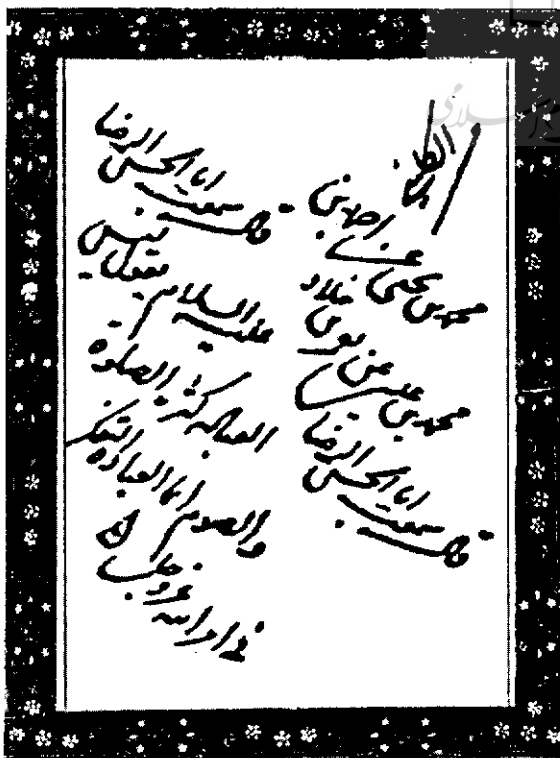 الكافي
محمد بن يحيى عن احمد بن
محمد بن عيسى عن معمر بن خلاد
قال سمعت ابا الحسن الرضا
قال سمعت ابا الحسن الرضا
عليه السلام يقول ليس
العبادة كثرة الصلوة
والصوم انما العبادة التفكر
في امر الله عز وجل